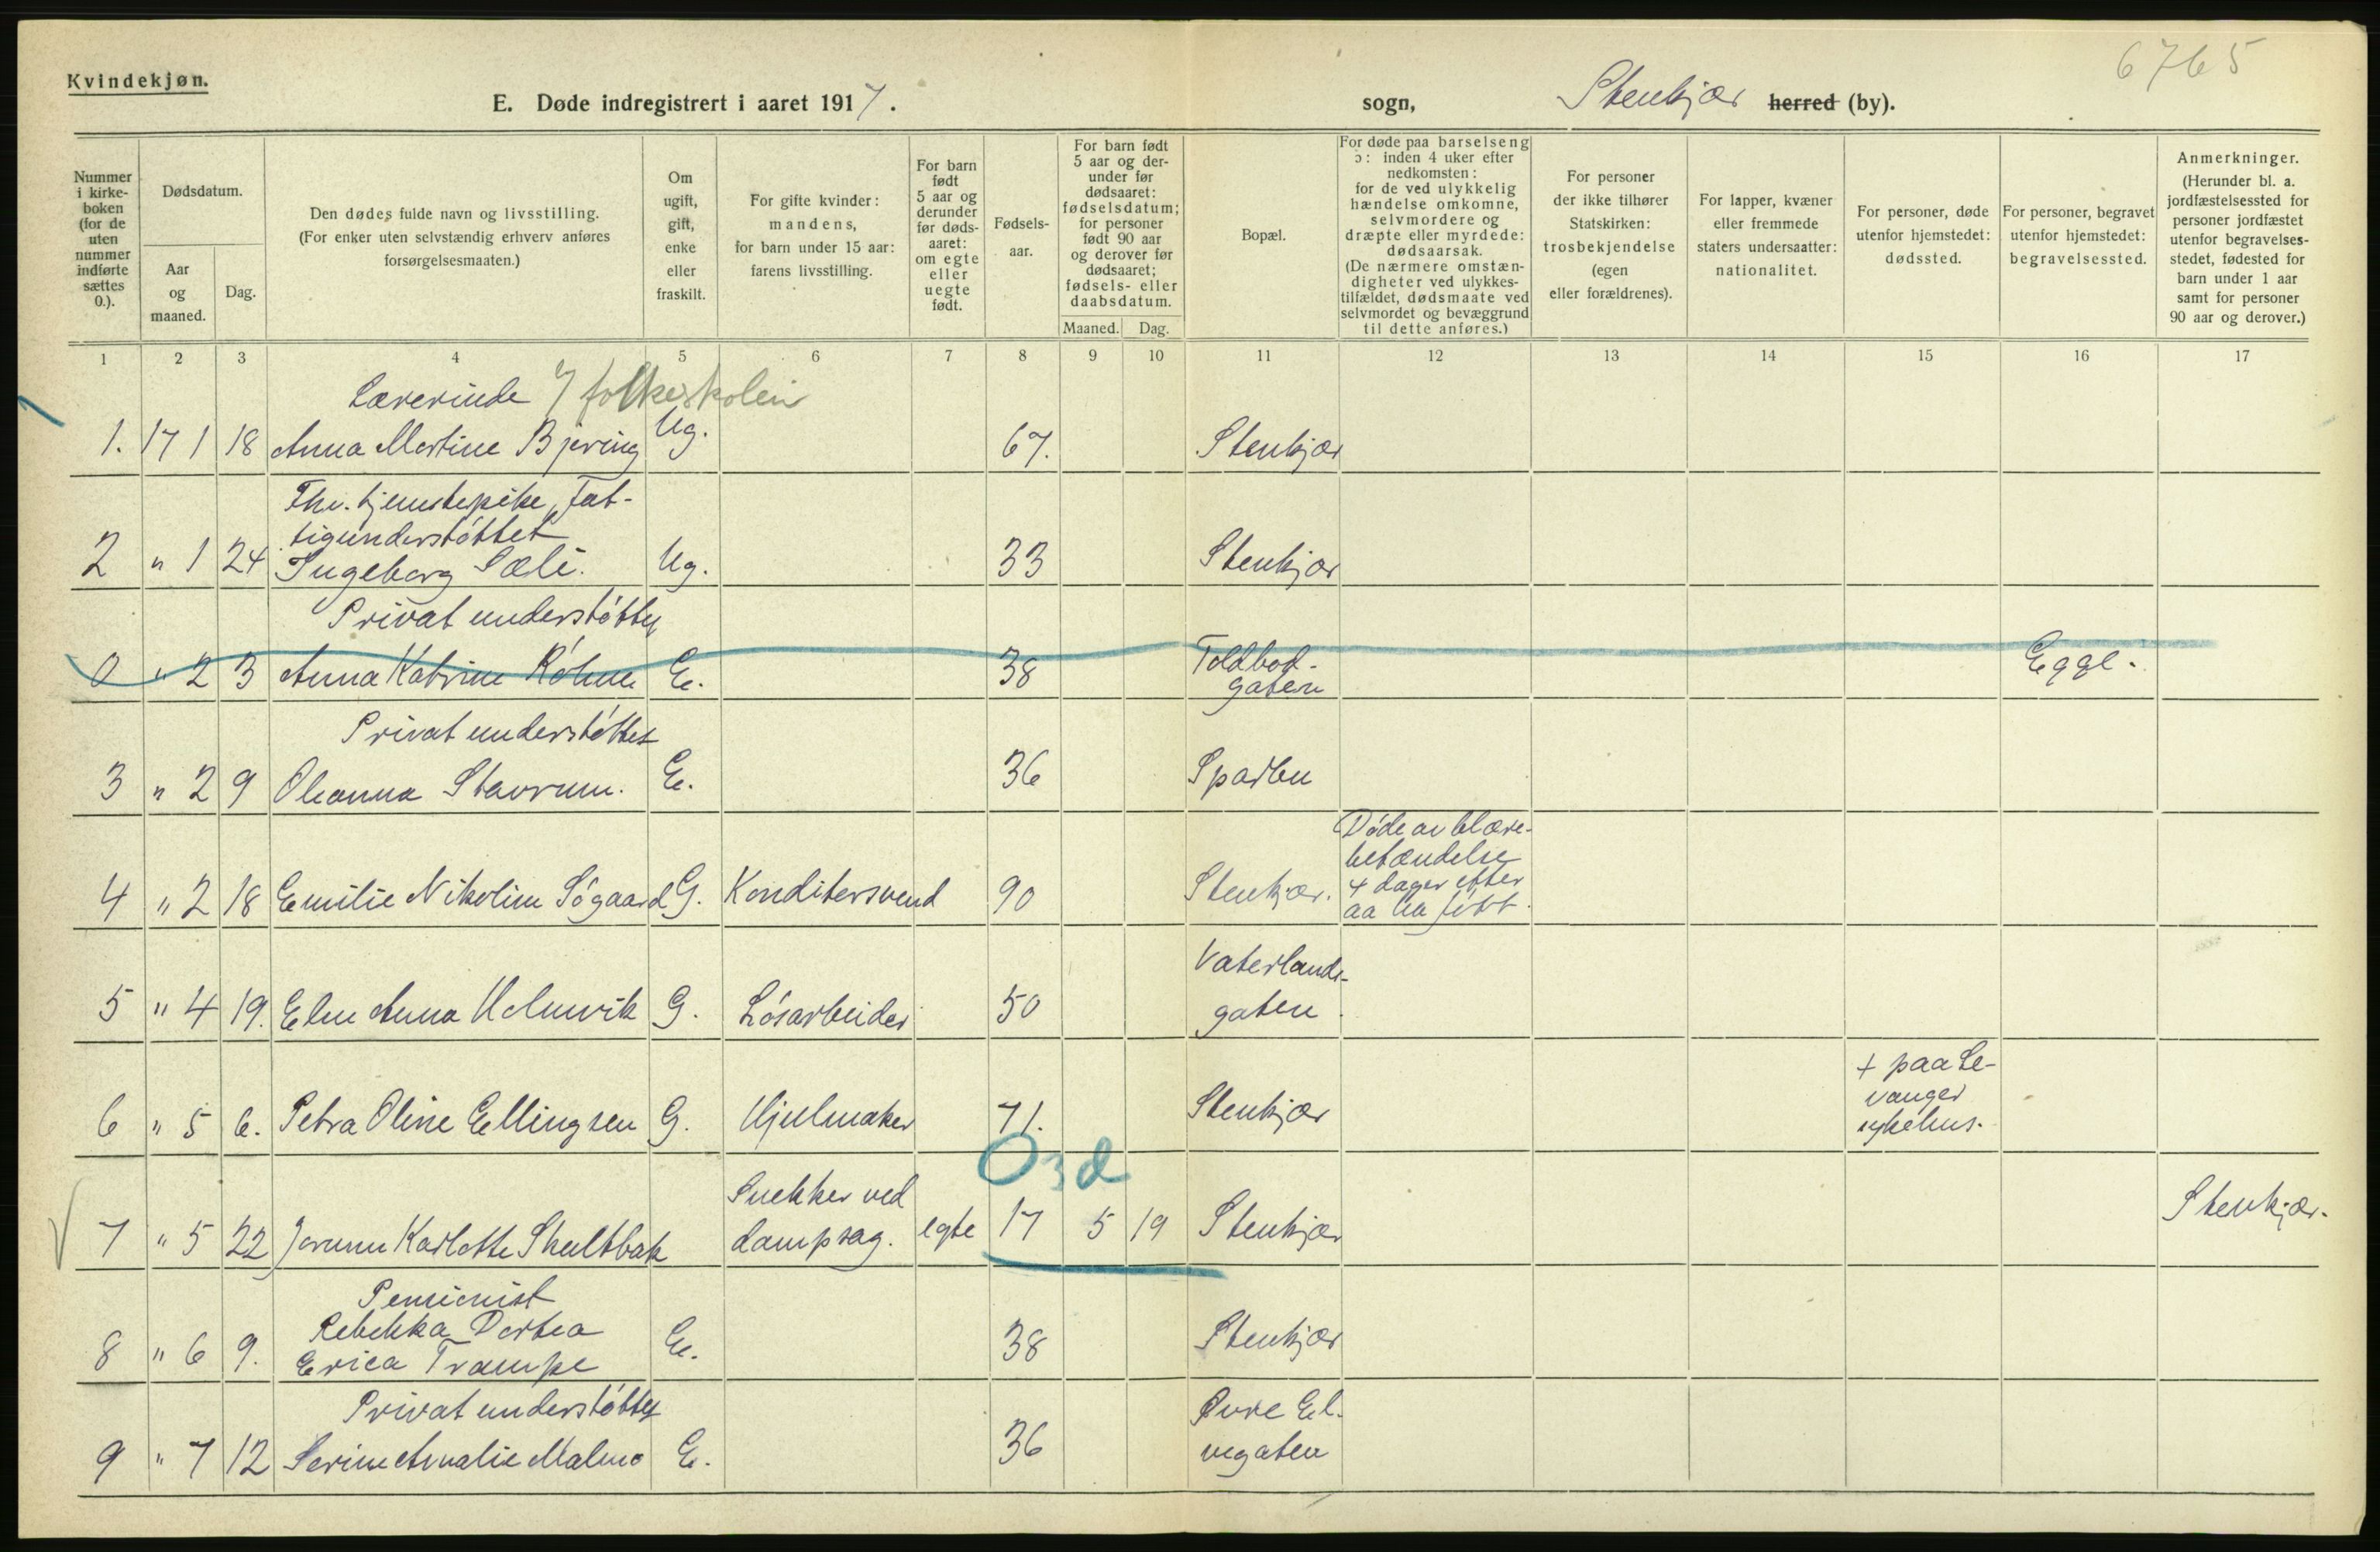 6765
Kvindekjøn.
E. Døde indregistrert i aaret 1917. sogn, Stenkjær herred (by).
Nummer i kirkeboken (for de uten nummer indførte sættes 0.).
Dødsdatum.
Aar og maaned.
Dag.
Den dødes fulde navn og livsstilling.
(For enker uten selvstændig erhverv anføres
forsørgelsesmaaten.)
Om ugift, gift, enke eller fraskilt.
For gifte kvinder:
mandens,
for barn under 15 aar:
farens livsstilling.
For barn født 5 aar og derunder før dødsaaret: om egte eller uegte født.
Fødselsaar.
For barn født 5 aar og derunder før dødsaaret: fødselsdatum; for personer født 90 aar og derover før dødsaaret; fødsels- eller daabsdatum.
Maaned. Dag.
Bopæl.
For døde paa barselseng
ɔ: inden 4 uker efter
nedkomsten:
for de ved ulykkelig
hændelse omkomne,
selvmordere og
dræpte eller myrdede:
dødsaarsak.
(De nærmere omstæn-
digheter ved ulykkes-
tilfældet, dødsmaate ved
selvmordet og bevæggrund
til dette anføres.)
For personer
der ikke tilhører
Statskirken:
trosbekjendelse
(egen
eller forældrenes).
For lapper, kvæner
eller fremmede
staters undersaatter:
nationalitet.
For personer, døde
utenfor hjemstedet:
dødssted.
For personer, begravet
utenfor hjemstedet:
begravelsessted.
Anmerkninger.
(Herunder bl. a.
jordfæstelsessted for
personer jordfæstet
utenfor begravelses-
stedet, fødested for
barn under 1 aar
samt for personer
90 aar og derover.)
1 2 3 4 5 6 7 8 9 10 11 12 13 14 15 16 17
Lærerinde / folkeskolen
1. 17 1 18 Anna Martine Bjering Ug. 67. Stenkjær
Fhv. tjenestepike, Fat-
tigunderstøttet
2 " 1 24 Ingeborg Sæli. Ug. 33 Stenkjær
Privat understøttet
0 " 2 3 Anna Katrine E. 38 Toldbod-
gaten Egge.
Privat understøttet
3 " 2 9 Oleanna Stavrum. E. 36 Sparbu
4 " 2 18 Emilie Nikoline Søgaard G. Konditorsvend 90 Stenkjær. Døde av blære-
betændelse
4 dager efter
aa ha født.
5 " 4 19. Elen Anna Holmvik G. Løsarbeider 50 Vaterlands-
gaten
6 " 5 6. Petra Oline Ellingsen G. Hjulmaker 71. Stenkjær + paa Le-
vanger
sykehus.
O 3 d
7 " 5 22 Jorunn Karlotte Skultbak Snekker ved
dampsag. egte 17 5 19 Stenkjær Stenkjær.
Pensionist
Rebekka Dortea
8 " 6 9. Erica Trampe E. 38 Stenkjær
Privat understøttet
9 " 7 12 Serine Amalie Malmo E. 36 Øvre El-
vegaten